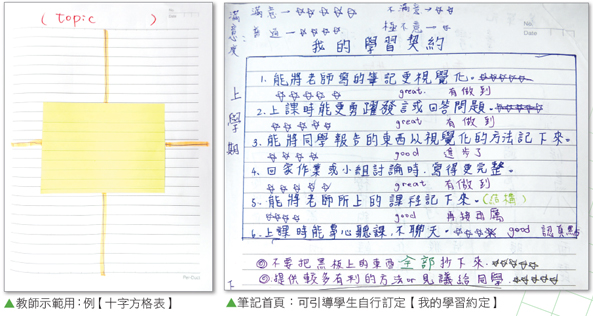 ( topic )
▲教師示範用：例【十字方格表】
滿意度
滿意→☆☆☆☆ 不滿意→☆☆
普通→☆☆☆ 極不意→☆
No.
Date
我的學習契約
上學期
1. 能將老師寫的筆記更視覺化。☆☆☆☆☆
☆☆☆☆☆ great. 有做到
2. 上課時能更勇躍發言或回答問題。☆☆☆☆☆
☆☆☆☆☆ great 有做到
3. 能將同學報告的東西以視覺化的方法記下來。
☆☆☆☆ good 進步了
4. 回家作業或小組討論時,寫得更完整。
☆☆☆☆☆ great 有做到
5. 能將老師所上的課程記下來。(結構)
☆☆☆☆ good 再接再厲
6. 上課時能專心聽課,不聊天。☆☆☆☆ good 認真點
◎不要把黑板上的東西全部抄下來。☆☆☆☆☆
◎提供較多有利的方法or見議給同學。☆☆☆☆☆
▲筆記首頁：可引導學生自行訂定【我的學習約定】